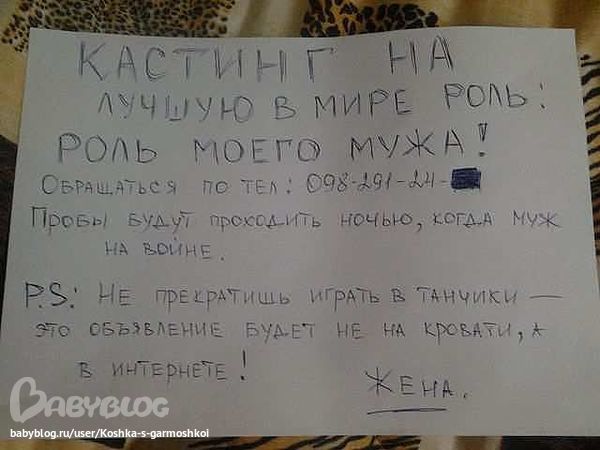 КАСТИНГ НА
ЛУЧШУЮ В МИРЕ РОЛЬ:
РОЛЬ МОЕГО МУЖА!
ОБРАЩАТЬСЯ ПО ТЕЛ: 098-291-24-
ПРОБЫ БУДУТ ПРОХОДИТЬ НОЧЬЮ, КОГДА МУЖ
НА ВОЙНЕ.
P.S: НЕ ПРЕКРАТИШЬ ИГРАТЬ В ТАНЧИКИ —
ЭТО ОБЪЯВЛЕНИЕ БУДЕТ НЕ НА КРОВАТИ, А
В ИНТЕРНЕТЕ!
ЖЕНА.
BABYBLOG
babyblog.ru/user/Koshka-s-garmoshkoi